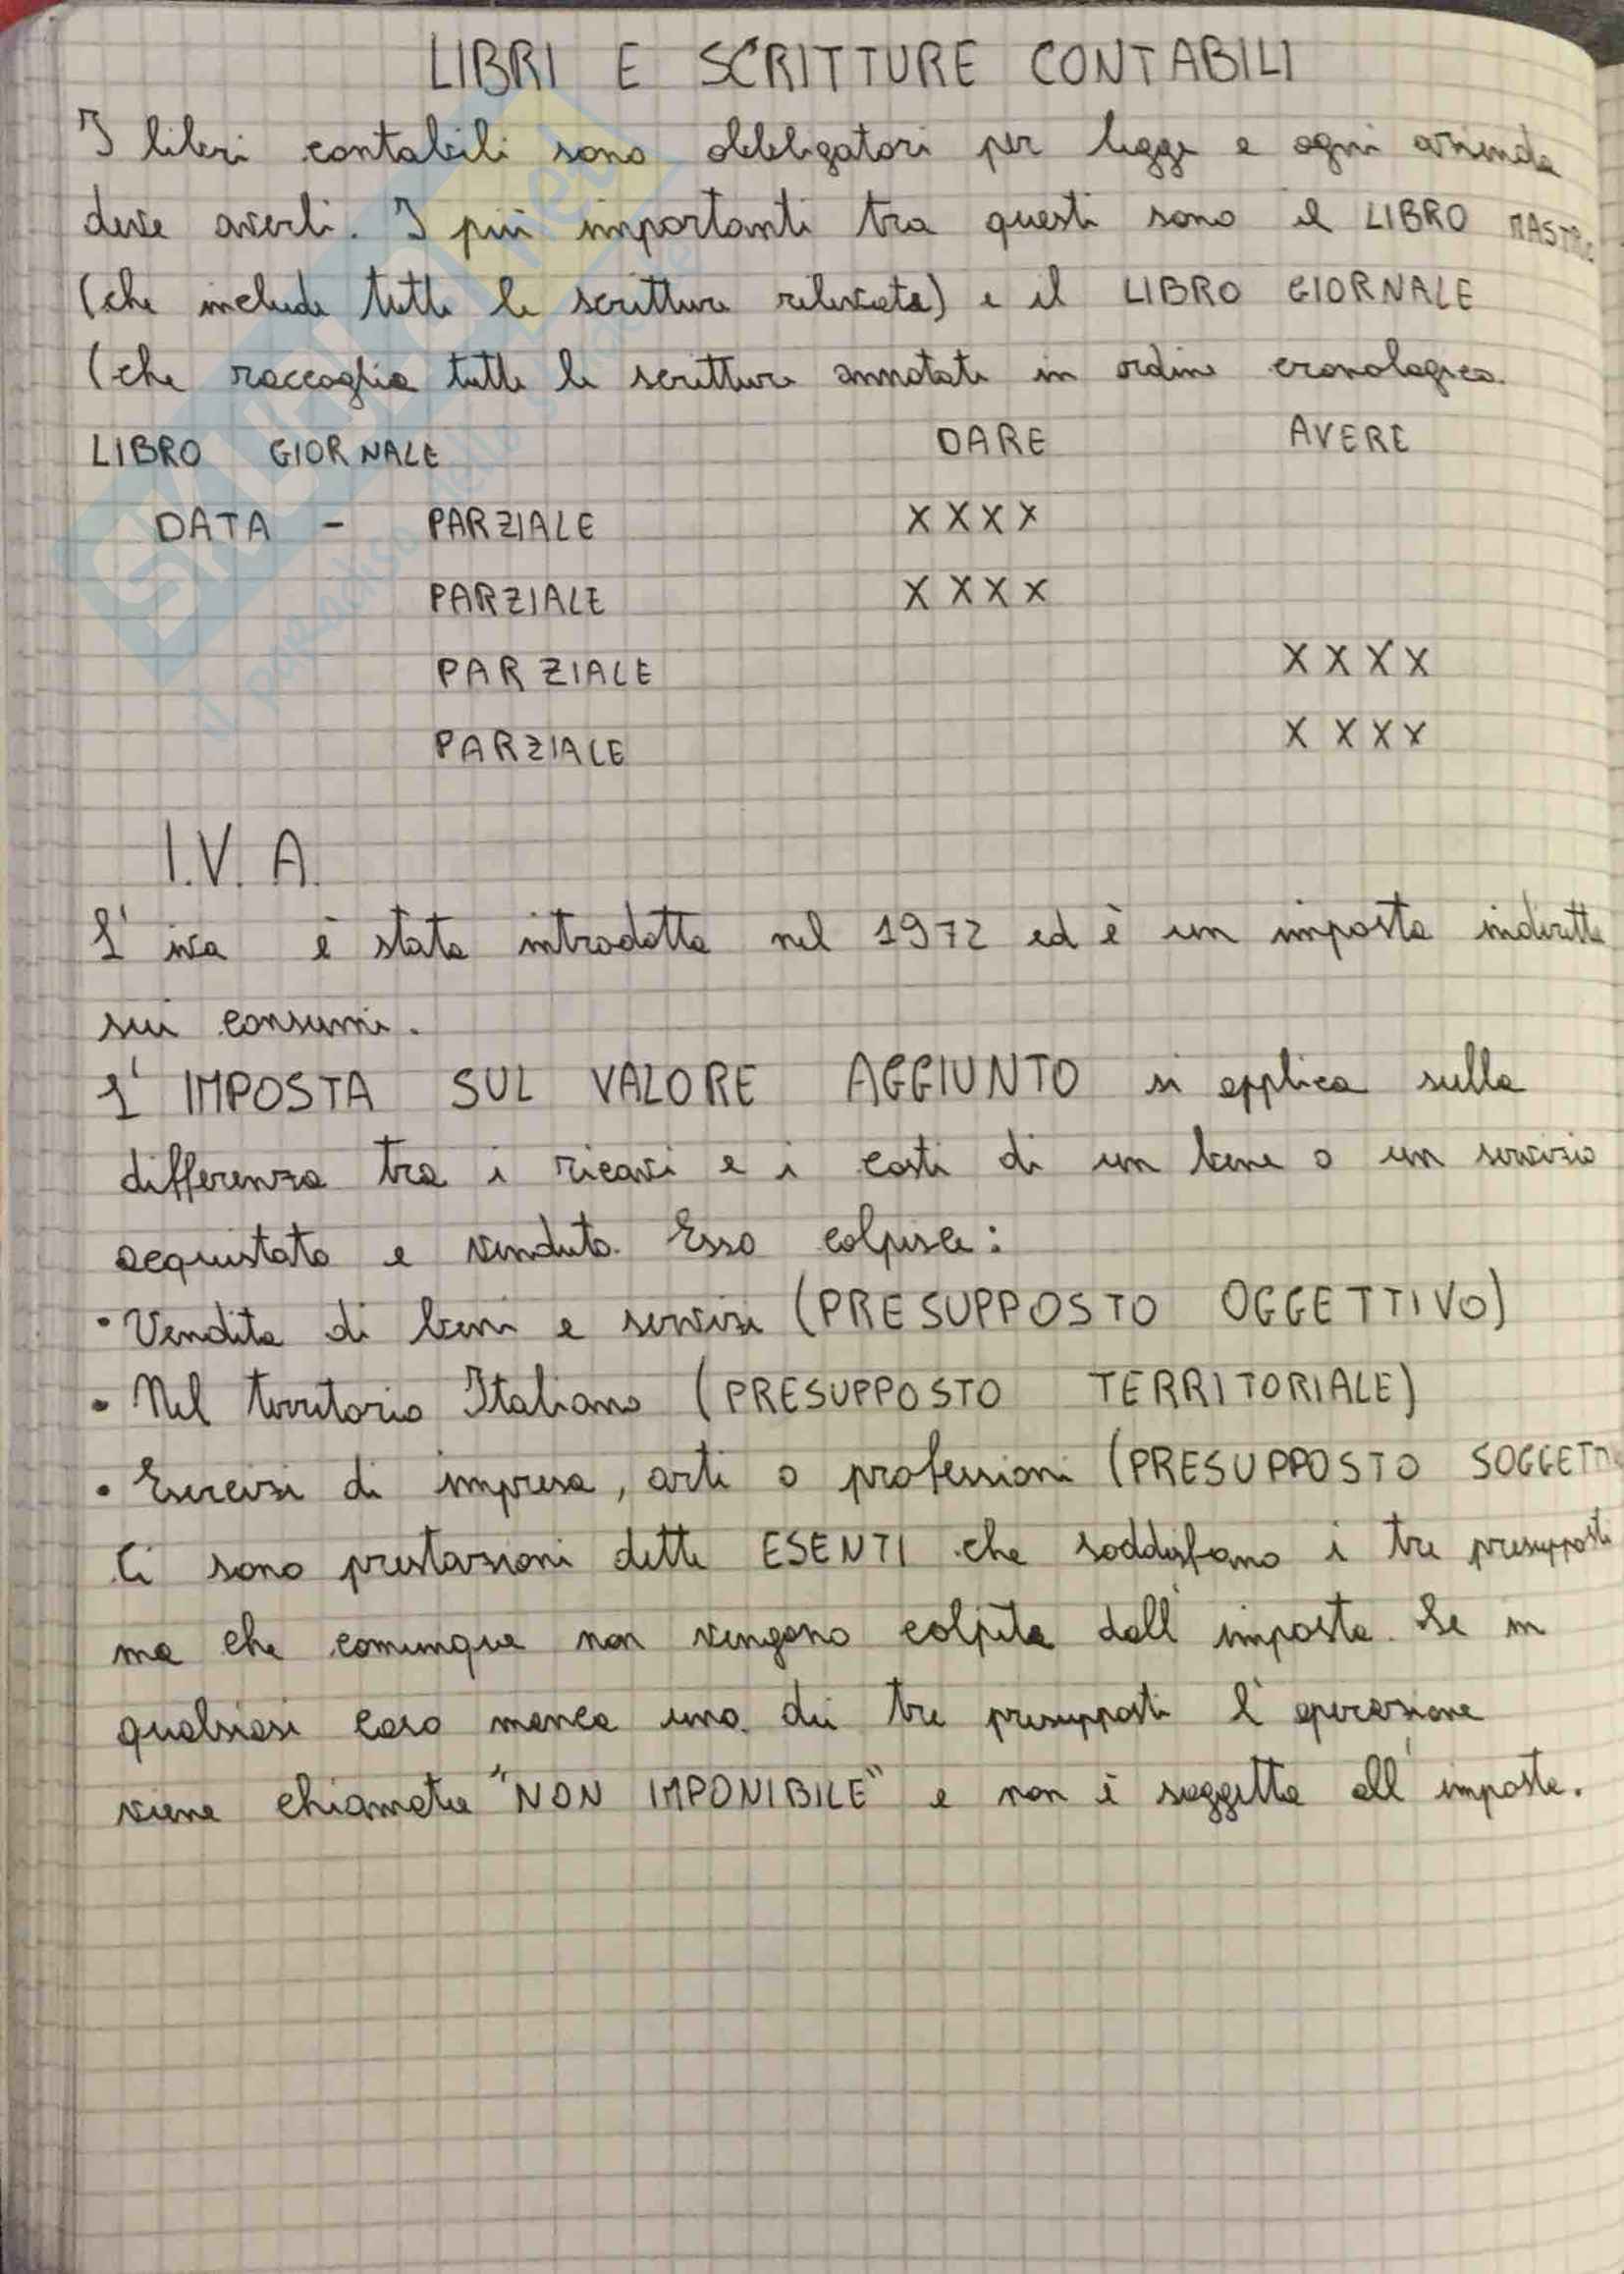 LIBRI E SCRITTURE CONTABILI
I libri contabili sono obbligatori per legge e ogni azienda
deve averli. I più importanti tra questi sono il LIBRO MASTRO
(che include tutte le scritture rilevate) e il LIBRO GIORNALE
(che raccoglie tutte le scritture annotate in ordine cronologico.
LIBRO GIORNALE DARE AVERE
DATA - PARZIALE XXXX
PARZIALE XXXX
PARZIALE XXXX
PARZIALE XXXX
I.V.A.
L' iva è stata introdotta nel 1972 ed è un imposta indiretta
sui consumi.
L' IMPOSTA SUL VALORE AGGIUNTO si applica sulla
differenza tra i ricavi e i costi di un bene o un servizio
acquistato e venduto. Esso colpisce:
• Vendita di beni e servizi (PRESUPPOSTO OGGETTIVO)
• Nel territorio Italiano (PRESUPPOSTO TERRITORIALE)
• Esercizi di impresa, arti o professioni (PRESUPPOSTO
Ci sono prestazioni dette ESENTI che soddisfano i tre presupposti
ma che comunque non vengono colpite dall' imposta. Se in
qualsiasi caso manca uno dei tre presupposti l' operazione
viene chiamata "NON IMPONIBILE" e non è soggetta all' imposta.
SKUOLA.net
il paradiso dello studente